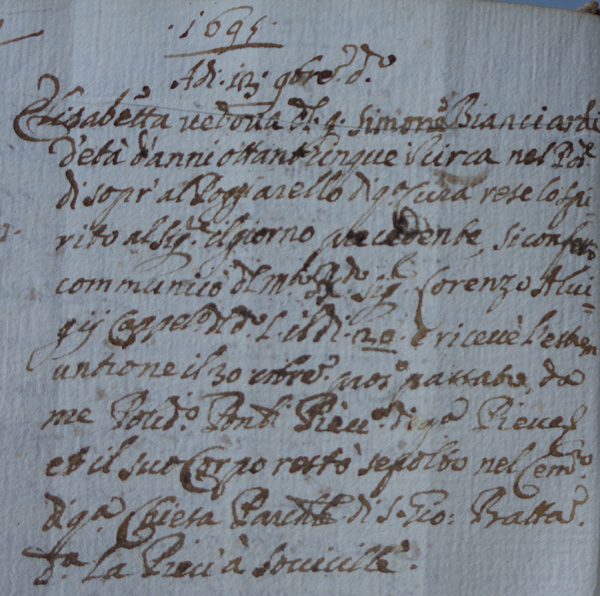 ·1695·
Adi · 13 · 9bre · do
Elisabetta vedova del q. Simone Bianciardi
d'età d'anni ottantacinque in circa nel Pod.
di sopr' al Poggiarello di qa Cura rese lo spi-
rito al Sigre il giorno precedente, si confessò
communicò dal m. Rdo Sig. Lorenzo Alui-
gij Cappelo di do L. il di 30 e ricevè l'estrem
untione il 30 8bre pros. passato, da
me Pievno di qa Pieve
et il suo Corpo restò sepolto nel Cemo
di qa Chiesa Parchle di S. Gio: Batta
da La Pieve à Sovicille.